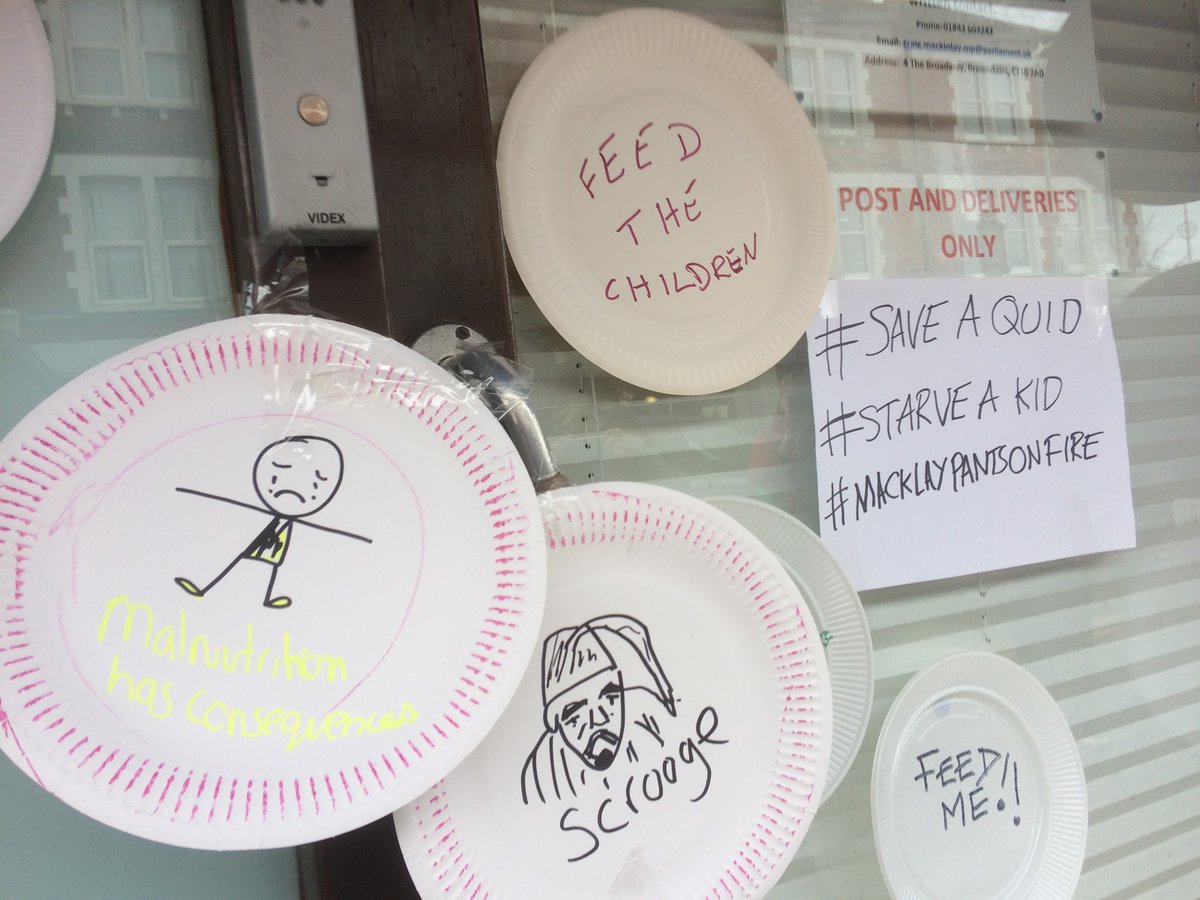 Phone: 01843 603242
Email: craig.mackinlay.mp@parliament.uk
Address: 4 The Broadway, Broadstairs, CT10 2AD
VIDEX
FEED
THE
CHILDREN
POST AND DELIVERIES
ONLY
#SAVE A QUID
#STARVE A KID
#MACKLAYPANTSONFIRE
Malnutrition
has consequences
Scrooge
FEED
ME!!